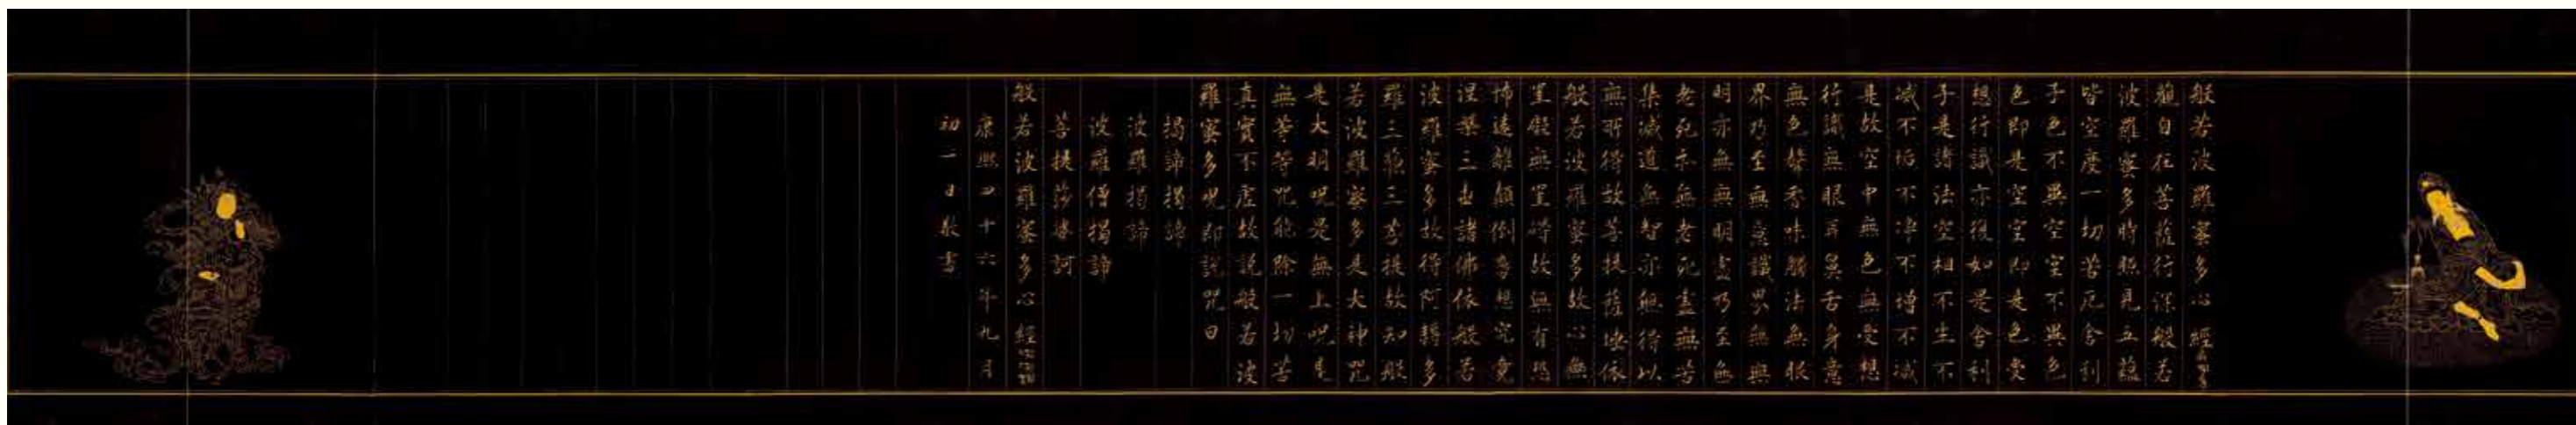 般若波羅蜜多心經
觀自在菩薩行深般若
波羅蜜多時照見五蘊
皆空度一切苦厄舍利
子色不異空空不異色
色即是空空即是色受
想行識亦復如是舍利
子是諸法空相不生不
滅不垢不淨不增不減
是故空中無色無受想
行識無眼耳鼻舌身意
無色聲香味觸法無眼
界乃至無意識界無無
明亦無無明盡乃至無
老死亦無老死盡無苦
集滅道無智亦無得以
無所得故菩提薩埵依
般若波羅蜜多故心無
罣礙無罣礙故無有恐
怖遠離顛倒夢想究竟
涅槃三世諸佛依般若
波羅蜜多故得阿耨多
羅三藐三菩提故知般
若波羅蜜多是大神咒
是大明咒是無上咒是
無等等咒能除一切苦
真實不虛故說般若波
羅蜜多咒即說咒曰
揭諦揭諦
波羅揭諦
波羅僧揭諦
菩提莎婆訶
般若波羅蜜多心經
康熙四十六年九月
初二日敬書